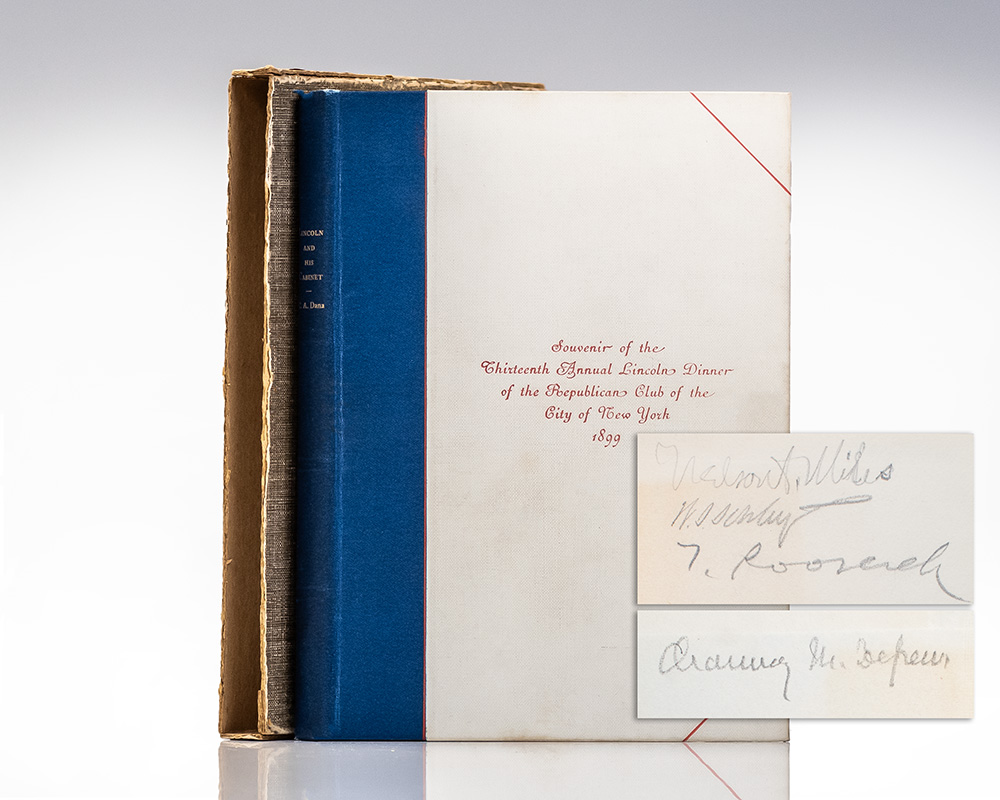 LINCOLN
AND
HIS
CABINET
A. Dana
Souvenir of the
Thirteenth Annual Lincoln Dinner
of the Republican Club of the
City of New York
1899
Nelson A. Miles
W. S. Schley
T. Roosevelt
Chauncey M. Depew